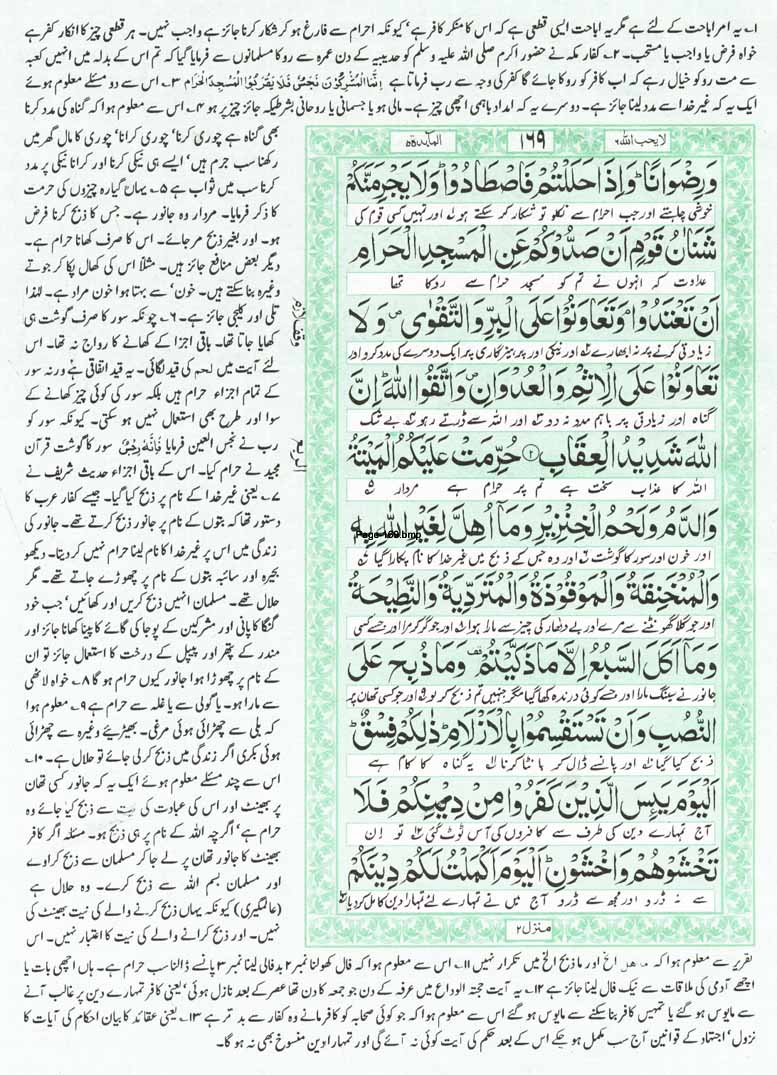 ۱؎ یہ امر اباحت کے لئے ہے مگر یہ اباحت ایسی قطعی ہے کہ اس کا منکر کافر ہے‘ کیونکہ احرام سے فارغ ہو کر شکار کرنا جائز ہے واجب نہیں۔ ہر قطعی چیز کا انکار کفر ہے
خواہ فرض یا واجب یا مستحب۔ ۲؎ کفار مکہ نے حضور اکرم صلی اللہ علیہ وسلم کو حدیبیہ کے دن عمرہ سے روکا مسلمانوں سے فرمایا گیا کہ تم اس کے بدلہ میں انہیں کعبہ
سے مت روکو خیال رہے کہ اب کافر کو روکا جائے گا کفر کی وجہ سے رب فرماتا ہے اِنَّمَا الْمُشْرِكُوْنَ نَجَسٌ فَلَا يَقْرَبُوا الْمَسْجِدَ الْحَرَامَ ۳؎ اس سے دو مسئلے معلوم ہوئے
ایک یہ کہ غیر خدا سے مدد لینا جائز ہے۔ دوسرے یہ کہ امداد باہمی اچھی چیز ہے۔ مالی ہو یا جسمانی یا روحانی بشرطیکہ جائز چیز پر ہو ۴؎ اس سے معلوم ہوا کہ گناہ کی مدد کرنا
بھی گناہ ہے چوری کرنا‘ چوری کرانا‘ چوری کا مال گھر میں
رکھنا سب جرم ہیں‘ ایسے ہی نیکی کرنا اور کرانا نیکی پر مدد
کرنا سب میں ثواب ہے ۵؎ یہاں گیارہ چیزوں کی حرمت
کا ذکر فرمایا۔ مردار وہ جانور ہے۔ جس کا ذبح کرنا فرض
ہو۔ اور بغیر ذبح مر جائے۔ اس کا صرف کھانا حرام ہے۔
دیگر بعض منافع جائز ہیں۔ مثلاً اس کی کھال پکا کر جوتے
وغیرہ بنا سکتے ہیں۔ خون‘ سے بہتا ہوا خون مراد ہے۔ لہٰذا
تلی اور کلیجی جائز ہے۔ ۶؎ چونکہ سور کا صرف گوشت ہی
کھایا جاتا تھا۔ باقی اجزا کے کھانے کا رواج نہ تھا۔ اس
لئے آیت میں لحم کی قید لگائی۔ یہ قید اتفاقی ہے ورنہ سور
کے تمام اجزاء حرام ہیں بلکہ سور کی کوئی چیز کھانے کے
سوا اور طرح بھی استعمال نہیں ہو سکتی۔ کیونکہ سور کو
رب نے نجس العین فرمایا فَاِنَّهٗ رِجْسٌ سور کا گوشت قرآن
مجید نے حرام کیا۔ اس کے باقی اجزاء حدیث شریف نے
۷؎ یعنی غیر خدا کے نام پر ذبح کیا گیا۔ جیسے کفار عرب کا
دستور تھا کہ بتوں کے نام پر جانور ذبح کرتے تھے۔ جانور کی
زندگی میں اس پر غیر خدا کا نام لینا حرام نہیں کر دیتا۔ دیکھو
بحیرہ اور سائبہ بتوں کے نام پر چھوڑے جاتے تھے۔ مگر
حلال تھے۔ مسلمان انہیں ذبح کریں اور کھائیں‘ جب خود
گنگا کا پانی اور مشرکین کے پوجا کی گائے کا پینا کھانا جائز اور
مندر کے پتھر اور پیپل کے درخت کا استعمال جائز تو ان
کے نام پر چھوڑا ہوا جانور کیوں حرام ہو گا ۸؎ خواہ لاٹھی
سے مارا ہو۔ یا گولی سے یا غلہ سے حرام ہے ۹؎ معلوم ہوا
کہ بلی سے چھڑائی ہوئی مرغی۔ بھیڑیئے وغیرہ سے چھڑائی
ہوئی بکری اگر زندگی میں ذبح کر لی جائے تو حلال ہے۔ ۱۰؎
اس سے چند مسئلے معلوم ہوئے ایک یہ کہ جانور کسی تھان
پر بھینٹ اور اس کی عبادت کی نیت سے ذبح کیا جائے وہ
حرام ہے‘ اگرچہ اللہ کے نام پر ہی ذبح ہو۔ مسئلہ اگر کافر
بھینٹ کا جانور تھان پر لے جا کر مسلمان سے ذبح کراوے
اور مسلمان بسم اللہ سے ذبح کرے۔ وہ حلال ہے
(عالمگیری) کیونکہ یہاں ذبح کرنے والے کی نیت بھینٹ کی
نہیں۔ اور ذبح کرانے والے کی نیت کا اعتبار نہیں۔ اس
لا یحب اللہ ۶ ۱۶۹ المآئدة ۵
وَرِضْوَانًا ؕ وَاِذَا حَلَلْتُمْ فَاصْطَادُوْا ؕ وَلَا يَجْرِمَنَّكُمْ
خوشی چاہتے اور جب احرام سے نکلو تو شکار کر سکتے ہو ۱؎ اور تمہیں کسی قوم کی
شَنَاٰنُ قَوْمٍ اَنْ صَدُّوْكُمْ عَنِ الْمَسْجِدِ الْحَرَامِ
عداوت کہ انہوں نے تم کو مسجد حرام سے روکا تھا
اَنْ تَعْتَدُوْا ۘ وَتَعَاوَنُوْا عَلَى الْبِرِّ وَالتَّقْوٰى ۪ وَلَا
زیادتی کرنے پر نہ ابھارے ۲؎ اور نیکی اور پرہیزگاری پر ایک دوسرے کی مدد کرو اور
تَعَاوَنُوْا عَلَى الْاِثْمِ وَالْعُدْوَانِ ۪ وَاتَّقُوا اللّٰهَ ؕ اِنَّ
گناہ اور زیادتی پر باہم مدد نہ دو ۴؎ اور اللہ سے ڈرتے رہو بے شک
اللّٰهَ شَدِيْدُ الْعِقَابِ ﴿۲﴾ حُرِّمَتْ عَلَيْكُمُ الْمَيْتَةُ
اللہ کا عذاب سخت ہے تم پر حرام ہے مردار ۵؎
وَالدَّمُ وَلَحْمُ الْخِنْزِيْرِ وَمَاۤ اُهِلَّ لِغَيْرِ اللّٰهِ بِهٖ
Page 169.bmp
اور خون اور سور کا گوشت ۶؎ اور وہ جس کے ذبح میں غیر خدا کا نام پکارا گیا ۷؎
وَالْمُنْخَنِقَةُ وَالْمَوْقُوْذَةُ وَالْمُتَرَدِّيَةُ وَالنَّطِيْحَةُ
اور جو گلا گھونٹنے سے مرے اور بے دھار کی چیز سے مارا ہوا ۸؎ اور جو گر کر مرا اور جسے کسی
وَمَاۤ اَكَلَ السَّبُعُ اِلَّا مَا ذَكَّيْتُمْ ۫ وَمَا ذُبِحَ عَلَى
جانور نے سینگ مارا اور جسے کوئی درندہ کھا گیا مگر جنہیں تم ذبح کر لو ۹؎ اور جو کسی تھان پر
النُّصُبِ وَاَنْ تَسْتَقْسِمُوْا بِالْاَزْلَامِ ؕ ذٰلِكُمْ فِسْقٌ ؕ
ذبح کیا گیا ۱۰؎ اور پانسے ڈال کر بانٹا کرنا ۱۱؎ یہ گناہ کا کام ہے
اَلْيَوْمَ يَئِسَ الَّذِيْنَ كَفَرُوْا مِنْ دِيْنِكُمْ فَلَا
آج تمہارے دین کی طرف سے کافروں کی آس ٹوٹ گئی ۱۲؎ تو ان
تَخْشَوْهُمْ وَاخْشَوْنِ ؕ اَلْيَوْمَ اَكْمَلْتُ لَكُمْ دِيْنَكُمْ
سے نہ ڈرو اور مجھ سے ڈرو آج میں نے تمہارے لئے تمہارا دین کامل کر دیا ۱۳؎
منزل ۲
وقف لازم
الربع
تقریر سے معلوم ہوا کہ ما اهل الخ اور ما ذبح الخ میں تکرار نہیں ۱۱؎ اس سے معلوم ہوا کہ فال کھولنا نمبر ۲ بد فالی لینا نمبر ۳ پانسے ڈالنا سب حرام ہے۔ ہاں اچھی بات یا
اچھے آدمی کی ملاقات سے نیک فال لینا جائز ہے ۱۲؎ یہ آیت حجتہ الوداع میں عرفہ کے دن جو جمعہ کا دن تھا عصر کے بعد نازل ہوئی‘ یعنی کافر تمہارے دین پر غالب آنے
سے مایوس ہو گئے یا تمہیں کافر بنا سکنے سے مایوس ہو گئے اس سے معلوم ہوا کہ جو کوئی صحابہ کو کافر مانے وہ کفار سے بد تر ہے ۱۳؎ یعنی عقائد کا بیان احکام کی آیات کا
نزول‘ اجتہاد کے قوانین آج سب مکمل ہو چکے اس کے بعد حکم کی آیت کوئی نہ آئے گی اور تمہارا دین منسوخ بھی نہ ہو گا۔